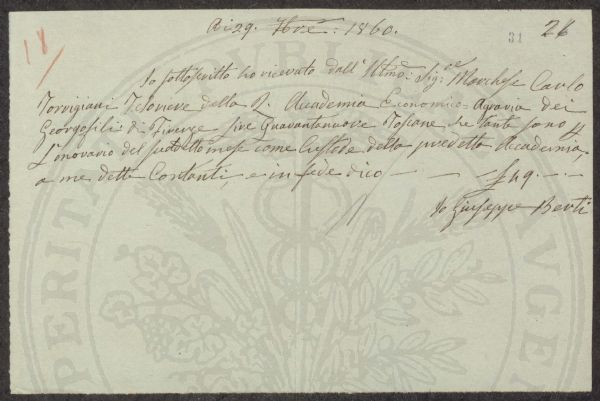 A dì 29. 9bre: 1860.
31
26
18
Io sottoscritto ho ricevuto dall' Illmo: Sig:re Marchese Carlo
Torrigiani Tesoriere della R. Accademia Economico-Agraria dei
Georgofili di Firenze lire Quarantanove Toscane che tante sono p
L'onorario del suddetto mese come Custode della predetta Accademia,
a me detto Contanti, e in fede dico — — £49. —
Io Giuseppe Berti
PERITA
PUBLI
AUGE